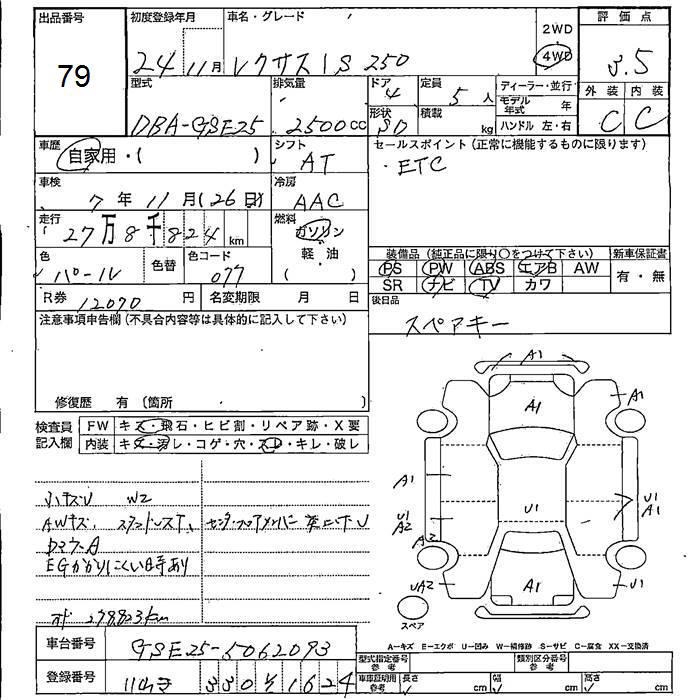 出品番号
79
初度登録年月
24 11月
車名・グレード
レクサス IS 250
2WD
4WD
評価点
3.5
外装 内装
C C
型式
DBA-GSE25
排気量
2500cc
ドア
4
形状
SD
定員
5人
積載
kg
ディーラー・並行
モデル年式 年
ハンドル 左・右
車歴
自家用・( )
シフト
AT
セールスポイント(正常に機能するものに限ります)
・ETC
車検
7年 11月(26日)
冷房
AAC
走行
27万8千824km
燃料
ガソリン
軽・油
( )
色
パール
色替
色コード
077
装備品(純正品に限り○をつけて下さい)
新車保証書
PS PW ABS エアB AW
SR ナビ TV カワ
有・無
R券 12070円
名変期限 月 日
後日品
スペアキー
注意事項申告欄(不具合内容等は具体的に記入して下さい)
修復歴 有(箇所 )
検査員記入欄
FW キズ・飛石・ヒビ割・リペア跡・X要
内装 キズ・汚レ・コゲ・穴・スレ・キレ・破レ
小キズU W2
AWキズ、スタッドレスT、
EGかかりにくい時あり
A1
A1
A1
A1
U1
U1
A2
A2
U1
A1
UA2
A1
U1
スペア
A-キズ E-エクボ U-凹み W-補修跡 S-サビ C-腐食 XX-交換済
車台番号
GSE25-5062093
登録番号
330 1624
型式指定番号 参考
類別区分番号 参考
車庫証明用 参考
長さ cm
幅 cm
高さ cm